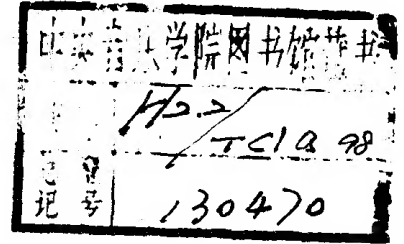 中央音乐学院图书馆藏书
H2.2/
TC1Q 98
登
记号 130470